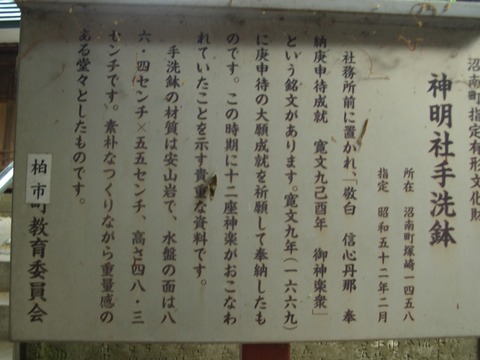 沼南町指定有形文化財
神明社手洗鉢
所在 沼南町塚崎一四五八
指定 昭和五十二年二月
社務所前に置かれ、「敬白 信心丹那 奉
納庚申待成就 寛文九己酉年 御神楽衆」
という銘文があります。寛文九年(一六六九)
に庚申待の大願成就を祈願して奉納したも
のです。この時期に十二座神楽がおこなわ
れていたことを示す貴重な資料です。
手洗鉢の材質は安山岩で、水盤の面は八
六・四センチ×五五センチ、高さ四八・三
センチです。素朴なつくりながら重量感の
ある堂々としたものです。
柏市町教育委員会